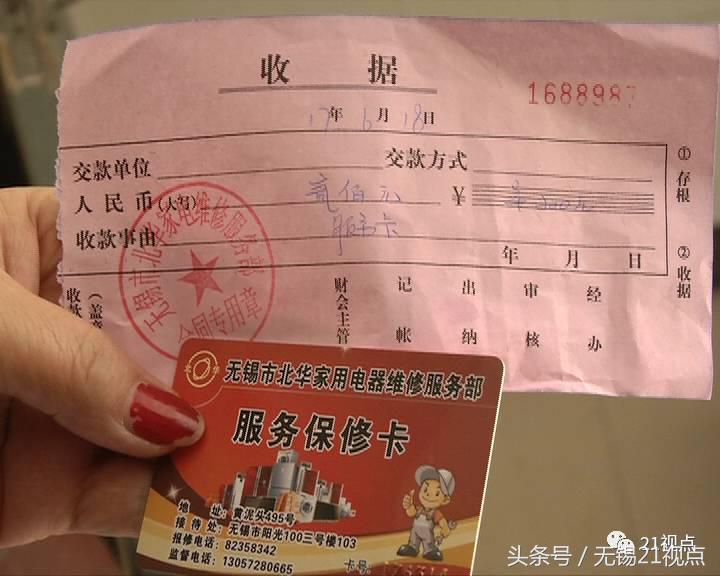 收 据
1688987
17年 6月 18日
交款单位 交款方式
人民币(大写) 贰佰元 ¥
收款事由 服务卡
年 月 日
①存根
②收据
财会主管 记帐 出纳 审核 经办
无锡市北华家电维修服务部
合同专用章
无锡市北华家用电器维修服务部
服务保修卡
地 址: 黄泥头495号
接 待 处: 无锡市阳光100三号楼103
报修电话: 82358342
监督电话: 13057280665
卡号:
21视点
头条号 / 无锡21视点